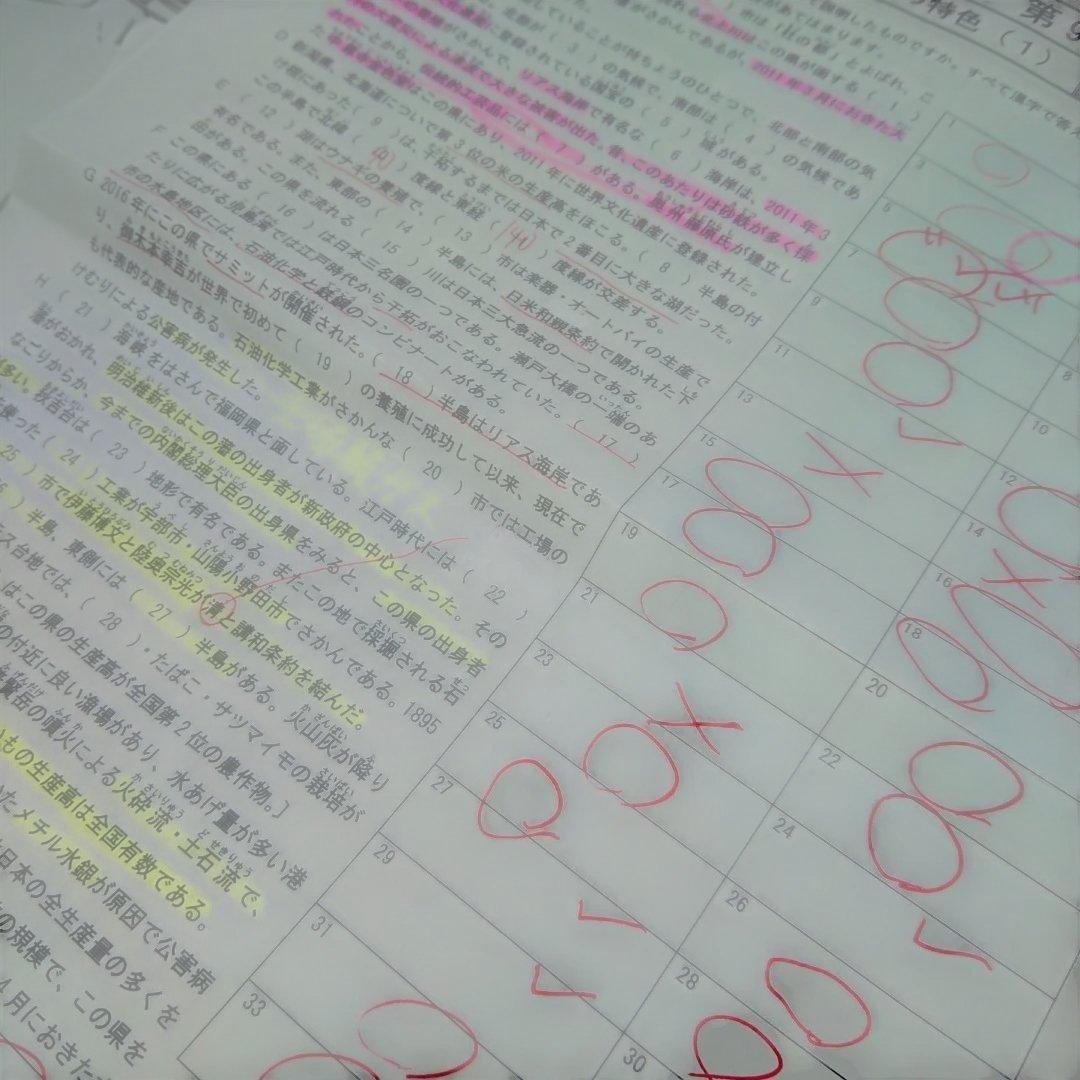 第9
の特色（1）
説明したものですか。すべて漢字で答え
があてはまります。
」とよばれ、こ
はこの県が面する（ 1 ）
がさかんであるが、2011年3月におきた大
していることが特ちょうのひとつで、北部と南部の気
（ 3 ）の気候、南部は（ 4 ）の気候であ
に登録されている国宝の（ 5 ）城がある。
がさかんで、リアス海岸で有名な（ 6 ）海岸は、2011年3
による津波で大きな被害が出た。昔、このあたりは砂鉄が多く採
ことから、伝統的工芸品には（ 7 ）がある。奥州藤原氏が建立し
はこの県にあり、2011年に世界文化遺産に登録された。
D 新潟県、北海道について第3位の米の生産高をほこる。（ 8 ）半島の付
け根にあった（ 9 ）は、干拓するまでは日本で2番目に大きな湖だった。
この半島で北緯（ 40 ）度線と東経（ 140 ）度線が交差する。
E （ 12 ）湖はウナギの養殖で、（ 13 ）市は楽器・オートバイの生産で
有名である。また、東部の（ 14 ）半島には、日米和親条約で開かれた下
田がある。この県を流れる（ 15 ）川は日本三大急流の一つである。
F この県にある（ 16 ）は日本三名園の一つである。瀬戸大橋の一端のあ
たりに広がる児島湾では江戸時代から干拓がおこなわれていた。（ 17 ）
市の水島地区には、石油化学と鉄鋼のコンビナートがある。
G 2016年にこの県でサミットが開催された。（ 18 ）半島はリアス海岸であ
り、御木本幸吉が世界で初めて（ 19 ）の養殖に成功して以来、現在で
も代表的な産地である。石油化学工業がさかんな（ 20 ）市では工場の
けむりによる公害病が発生した。
H （ 21 ）海峡をはさんで福岡県と面している。江戸時代には（ 22 ）
藩がおかれ、明治維新後はこの藩の出身者が新政府の中心となった。その
なごりからか、今までの内閣総理大臣の出身県をみると、この県の出身者
多い。秋吉台は（ 23 ）地形で有名である。またこの地で採掘される石
使った（ 24 ）工業が宇部市・山陽小野田市でさかんである。1895
25 ）市で伊藤博文と陸奥宗光が清と講和条約を結んだ。
）半島、東側には（ 27 ）半島がある。火山灰が降り
ス台地では、（ 28 ）・たばこ・サツマイモの栽培が
はこの県の生産高が全国第2位の農作物。］
の付近に良い漁場があり、水あげ量が多い港
賢岳の噴火による火砕流・土石流で、
もの生産高は全国有数である。
たメチル水銀が原因で公害病
日本の全生産量の多くを
の規模で、この県を
4月におきた
1
3
5
7
9
11
13
15
17
19
21
23
25
27
29
31
33
8
10
12
14
16
18
20
22
24
26
28
30